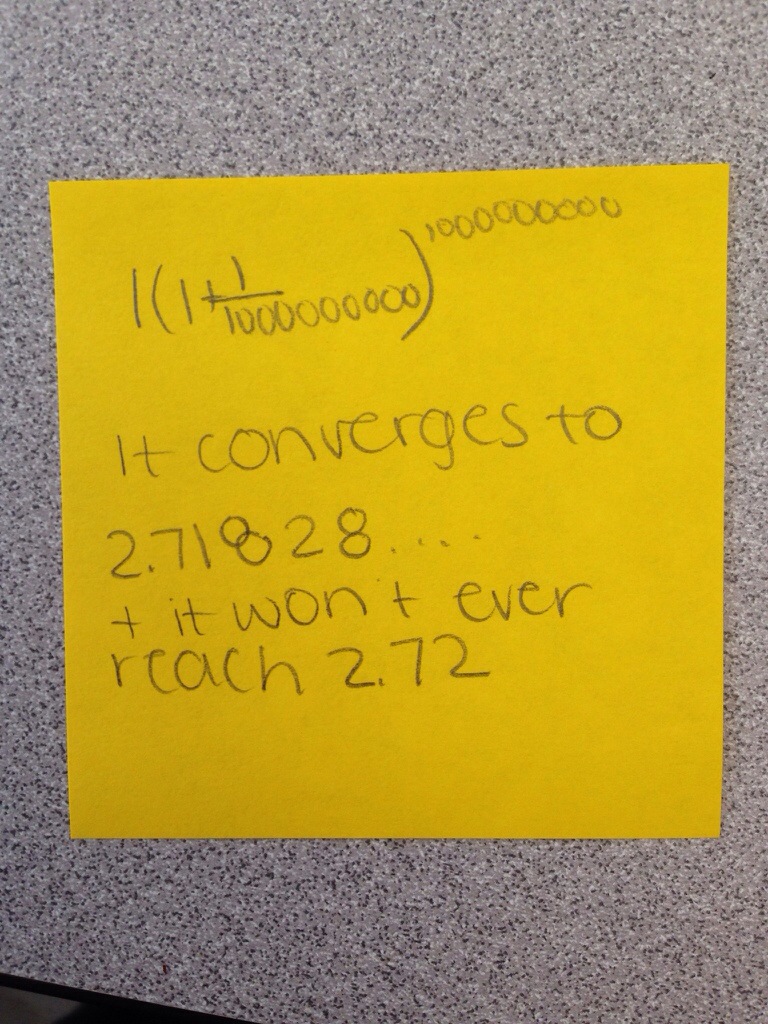 1(1+1/1000000000)^1000000000
It converges to
2.71828.....
+ it won't ever
reach 2.72